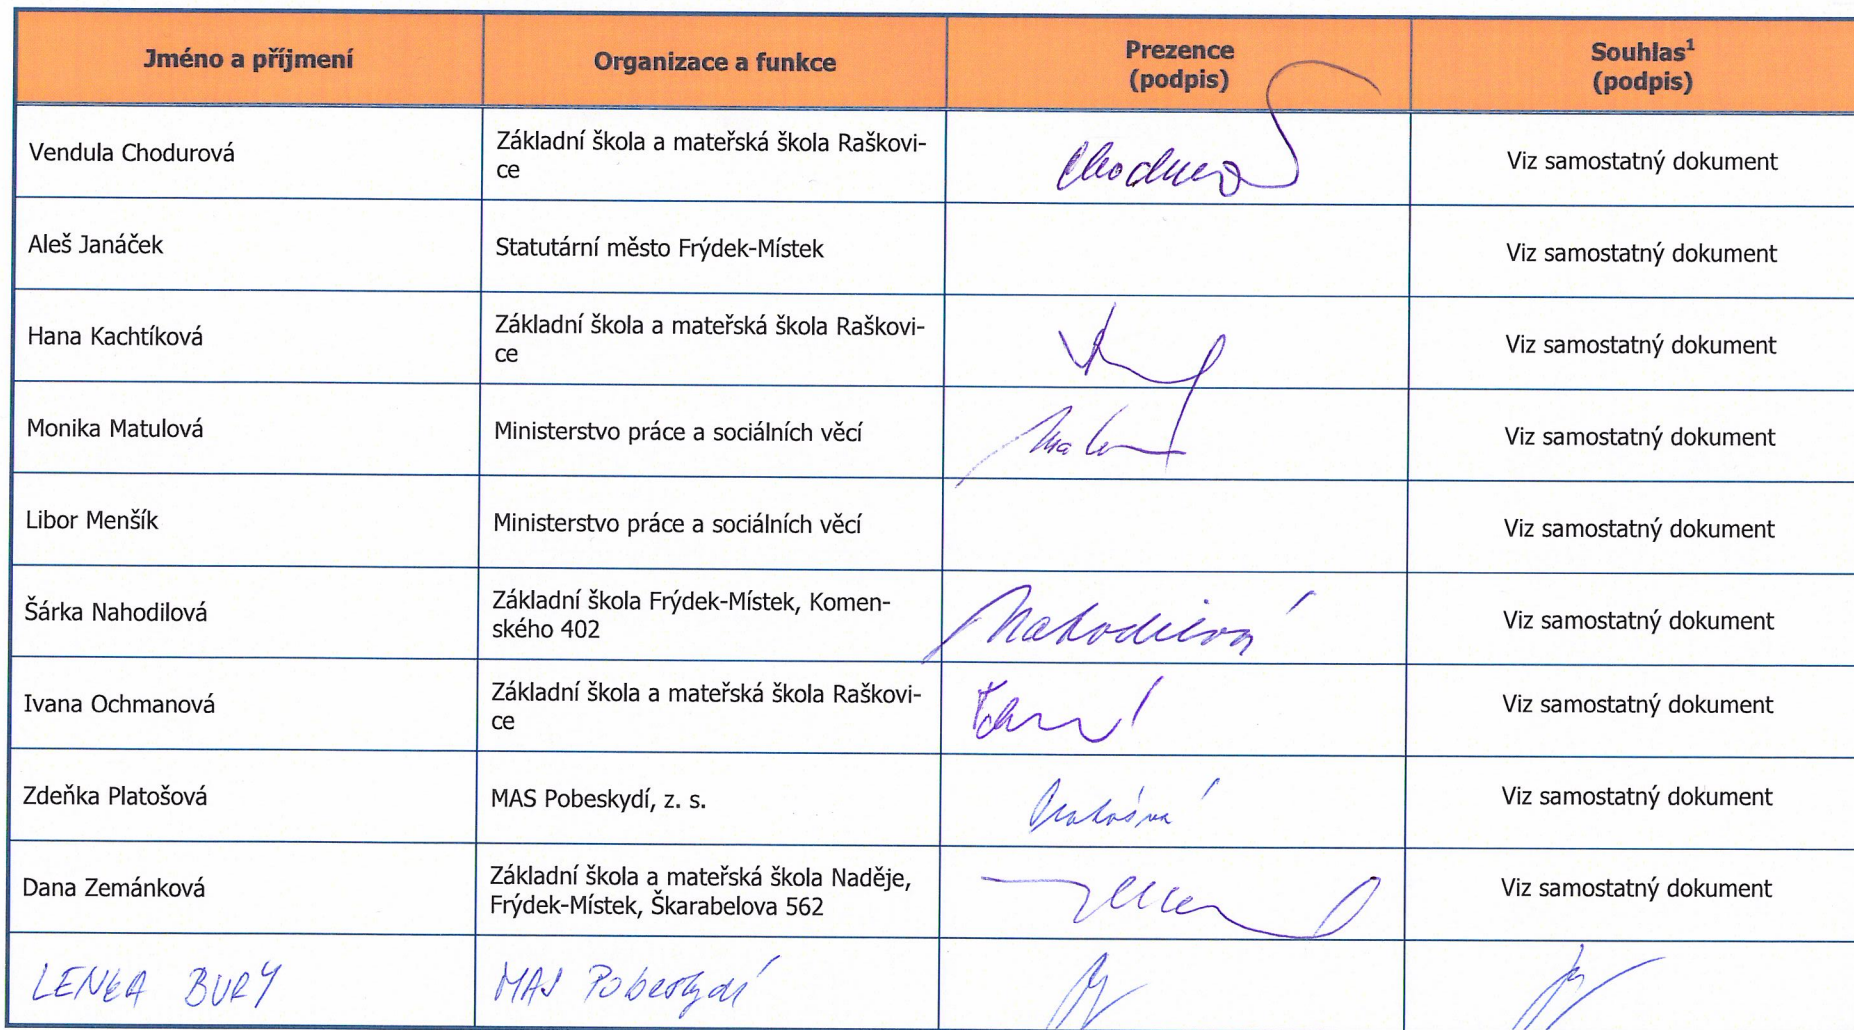 Jméno a příjmení
Organizace a funkce
Prezence
(podpis)
Souhlas¹
(podpis)
Vendula Chodurová
Základní škola a mateřská škola Raškovi-
ce
Viz samostatný dokument
Aleš Janáček
Statutární město Frýdek-Místek
Viz samostatný dokument
Hana Kachtíková
Základní škola a mateřská škola Raškovi-
ce
Viz samostatný dokument
Monika Matulová
Ministerstvo práce a sociálních věcí
Viz samostatný dokument
Libor Menšík
Ministerstvo práce a sociálních věcí
Viz samostatný dokument
Šárka Nahodilová
Základní škola Frýdek-Místek, Komen-
ského 402
Nahodilová
Viz samostatný dokument
Ivana Ochmanová
Základní škola a mateřská škola Raškovi-
ce
Viz samostatný dokument
Zdeňka Platošová
MAS Pobeskydí, z. s.
Viz samostatný dokument
Dana Zemánková
Základní škola a mateřská škola Naděje,
Frýdek-Místek, Škarabelova 562
Viz samostatný dokument
LENKA BURY
MAS Pobeskydí